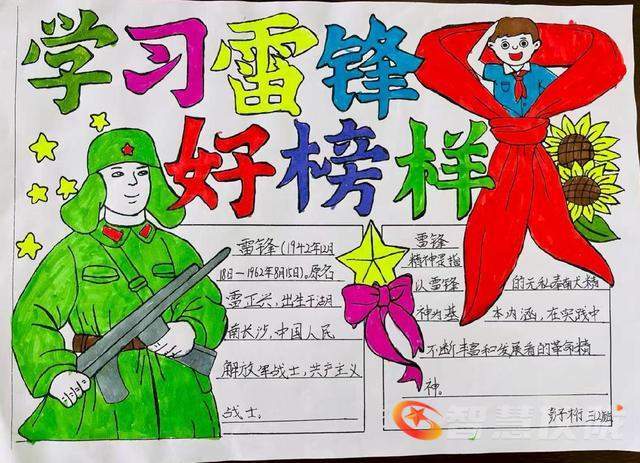 学习雷锋
好榜样
雷锋(1942年12月
18日—1962年8月15日)。原名
雷正兴,出生于湖
南长沙,中国人民
解放军战士,共产主义
战士。
雷锋
精神是指
以雷锋 的无私奉献精
神为基 本内涵,在实践中
不断丰富和发展着的革命精
神。
智慧